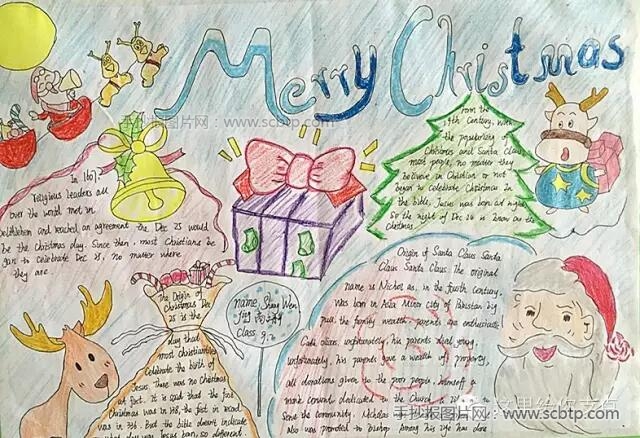 Merry Christmas
手抄报图片网：www.scbtp.com
In 1607
religious leaders all
over the world met in
bethlehem and reached an agreement the Dec 25 would
be the Christmas day. Since then, most Christians be
gan to celebrate Dec 25, no matter where
they are.
From the
19th Century, with
the popularizing of
Christmas and Santa Claus,
most people, no matter they
believe in Christian or not
began to celebrate Christmas. In
the bible, Jesus was born at night
So the night of Dec 24 is know as the
Christmas
The Origin of
Christmas Dec
25 is the
day that
most Christianities
Celebrate the birth of
Jesus. There was no Christmas
at first. It is said that the first
Christmas was in 138, the first in record
was in 336. But the bible doesn't indicate
what day was Jesus born, so different
name Shang Wen
Class 9.
Origin of Santa Claus Santa
Claus Santa Claus The original
name is Nicholas, in the fourth century,
was born in Asia Minor city of
the family wealth parents
unfortunately, his parents died young,
unfortunately, his parents gave a wealth of property,
all donations given to the poor people, himself a
monk convent dedicated to the Church
Serve the community. Nicholas
Also was promoted to bishop. Among his life has done
手抄报图片网：www.scbtp.com